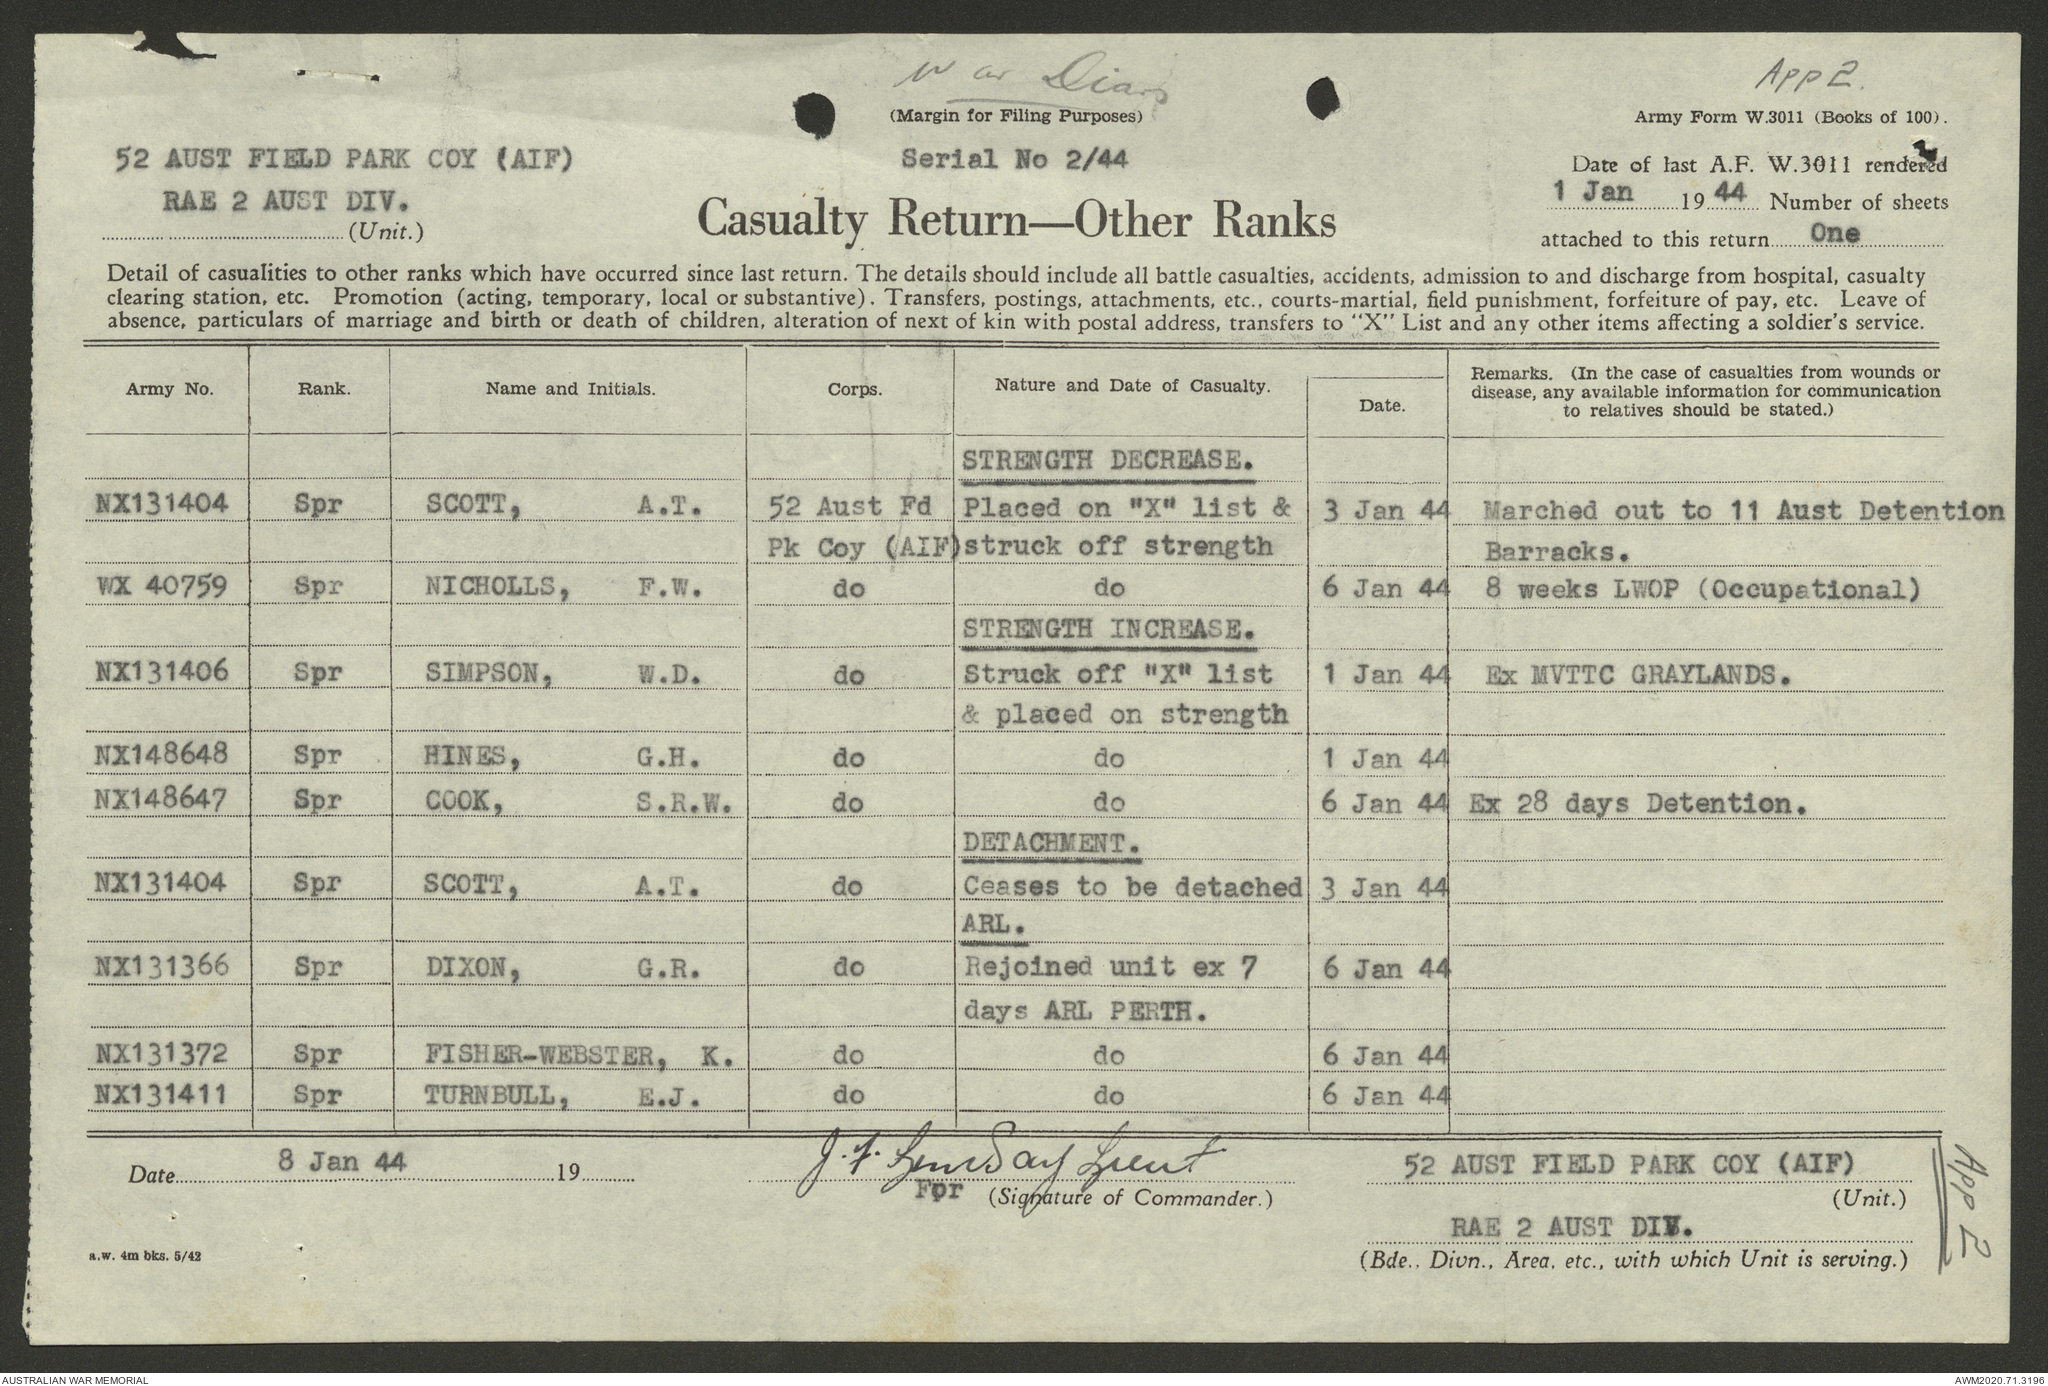 War Diary
App 2.
(Margin for Filing Purposes)
Army Form W.3011 (Books of 100).
52 AUST FIELD PARK COY (AIF)
RAE 2 AUST DIV.
(Unit.)
Serial No 2/44
Casualty Return—Other Ranks
Date of last A.F. W.3011 rendered
1 Jan 19 44 Number of sheets
attached to this return One
Detail of casualities to other ranks which have occurred since last return. The details should include all battle casualties, accidents, admission to and discharge from hospital, casualty
clearing station, etc. Promotion (acting, temporary, local or substantive). Transfers, postings, attachments, etc., courts-martial, field punishment, forfeiture of pay, etc. Leave of
absence, particulars of marriage and birth or death of children, alteration of next of kin with postal address, transfers to "X" List and any other items affecting a soldier's service.
Army No. Rank. Name and Initials. Corps. Nature and Date of Casualty. Date. Remarks. (In the case of casualties from wounds or
disease, any available information for communication
to relatives should be stated.)
STRENGTH DECREASE.
NX131404 Spr SCOTT, A.T. 52 Aust Fd Placed on "X" list & 3 Jan 44 Marched out to 11 Aust Detention
Pk Coy (AIF) struck off strength Barracks.
WX 40759 Spr NICHOLLS, F.W. do do 6 Jan 44 8 weeks LWOP (Occupational)
STRENGTH INCREASE.
NX131406 Spr SIMPSON, W.D. do Struck off "X" list 1 Jan 44 Ex MVTTC GRAYLANDS.
& placed on strength
NX148648 Spr HINES, G.H. do do 1 Jan 44
NX148647 Spr COOK, S.R.W. do do 6 Jan 44 Ex 28 days Detention.
DETACHMENT.
NX131404 Spr SCOTT, A.T. do Ceases to be detached 3 Jan 44
ARL.
NX131366 Spr DIXON, G.R. do Rejoined unit ex 7 6 Jan 44
days ARL PERTH.
NX131372 Spr FISHER-WEBSTER, K. do do 6 Jan 44
NX131411 Spr TURNBULL, E.J. do do 6 Jan 44
Date 8 Jan 44 19
J.F. Lindsay Lieut
For (Signature of Commander.)
52 AUST FIELD PARK COY (AIF)
(Unit.)
RAE 2 AUST DIV.
(Bde., Divn., Area, etc., with which Unit is serving.)
App 2
a.w. 4m bks. 5/42
AUSTRALIAN WAR MEMORIAL
AWM2020.71.3196